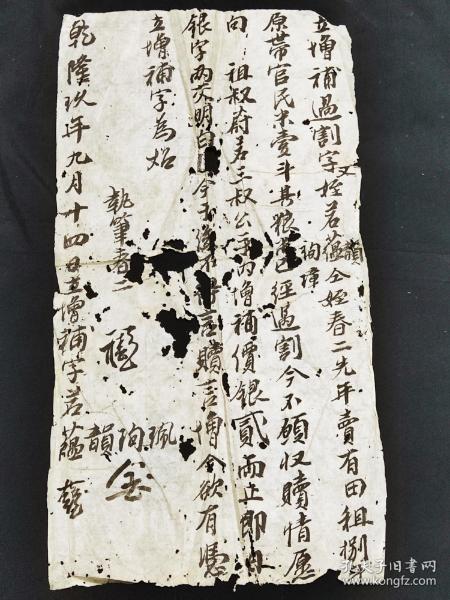 立增補過割字姪若蘊仝姪春二先年賣有田租捌
又 韻 珣 璋
原帶官民米壹斗其狼 已經過割今不願收贖情愿
向 祖叔蔚若三叔公 內增補價銀貳兩立即
銀字兩交明白 今 後 得言贖言增 今欲有憑
立增補字為炤
執筆春二
珮
珣
韻
乾隆玖年九月十四日立增補字若蘊
孔夫子旧书网